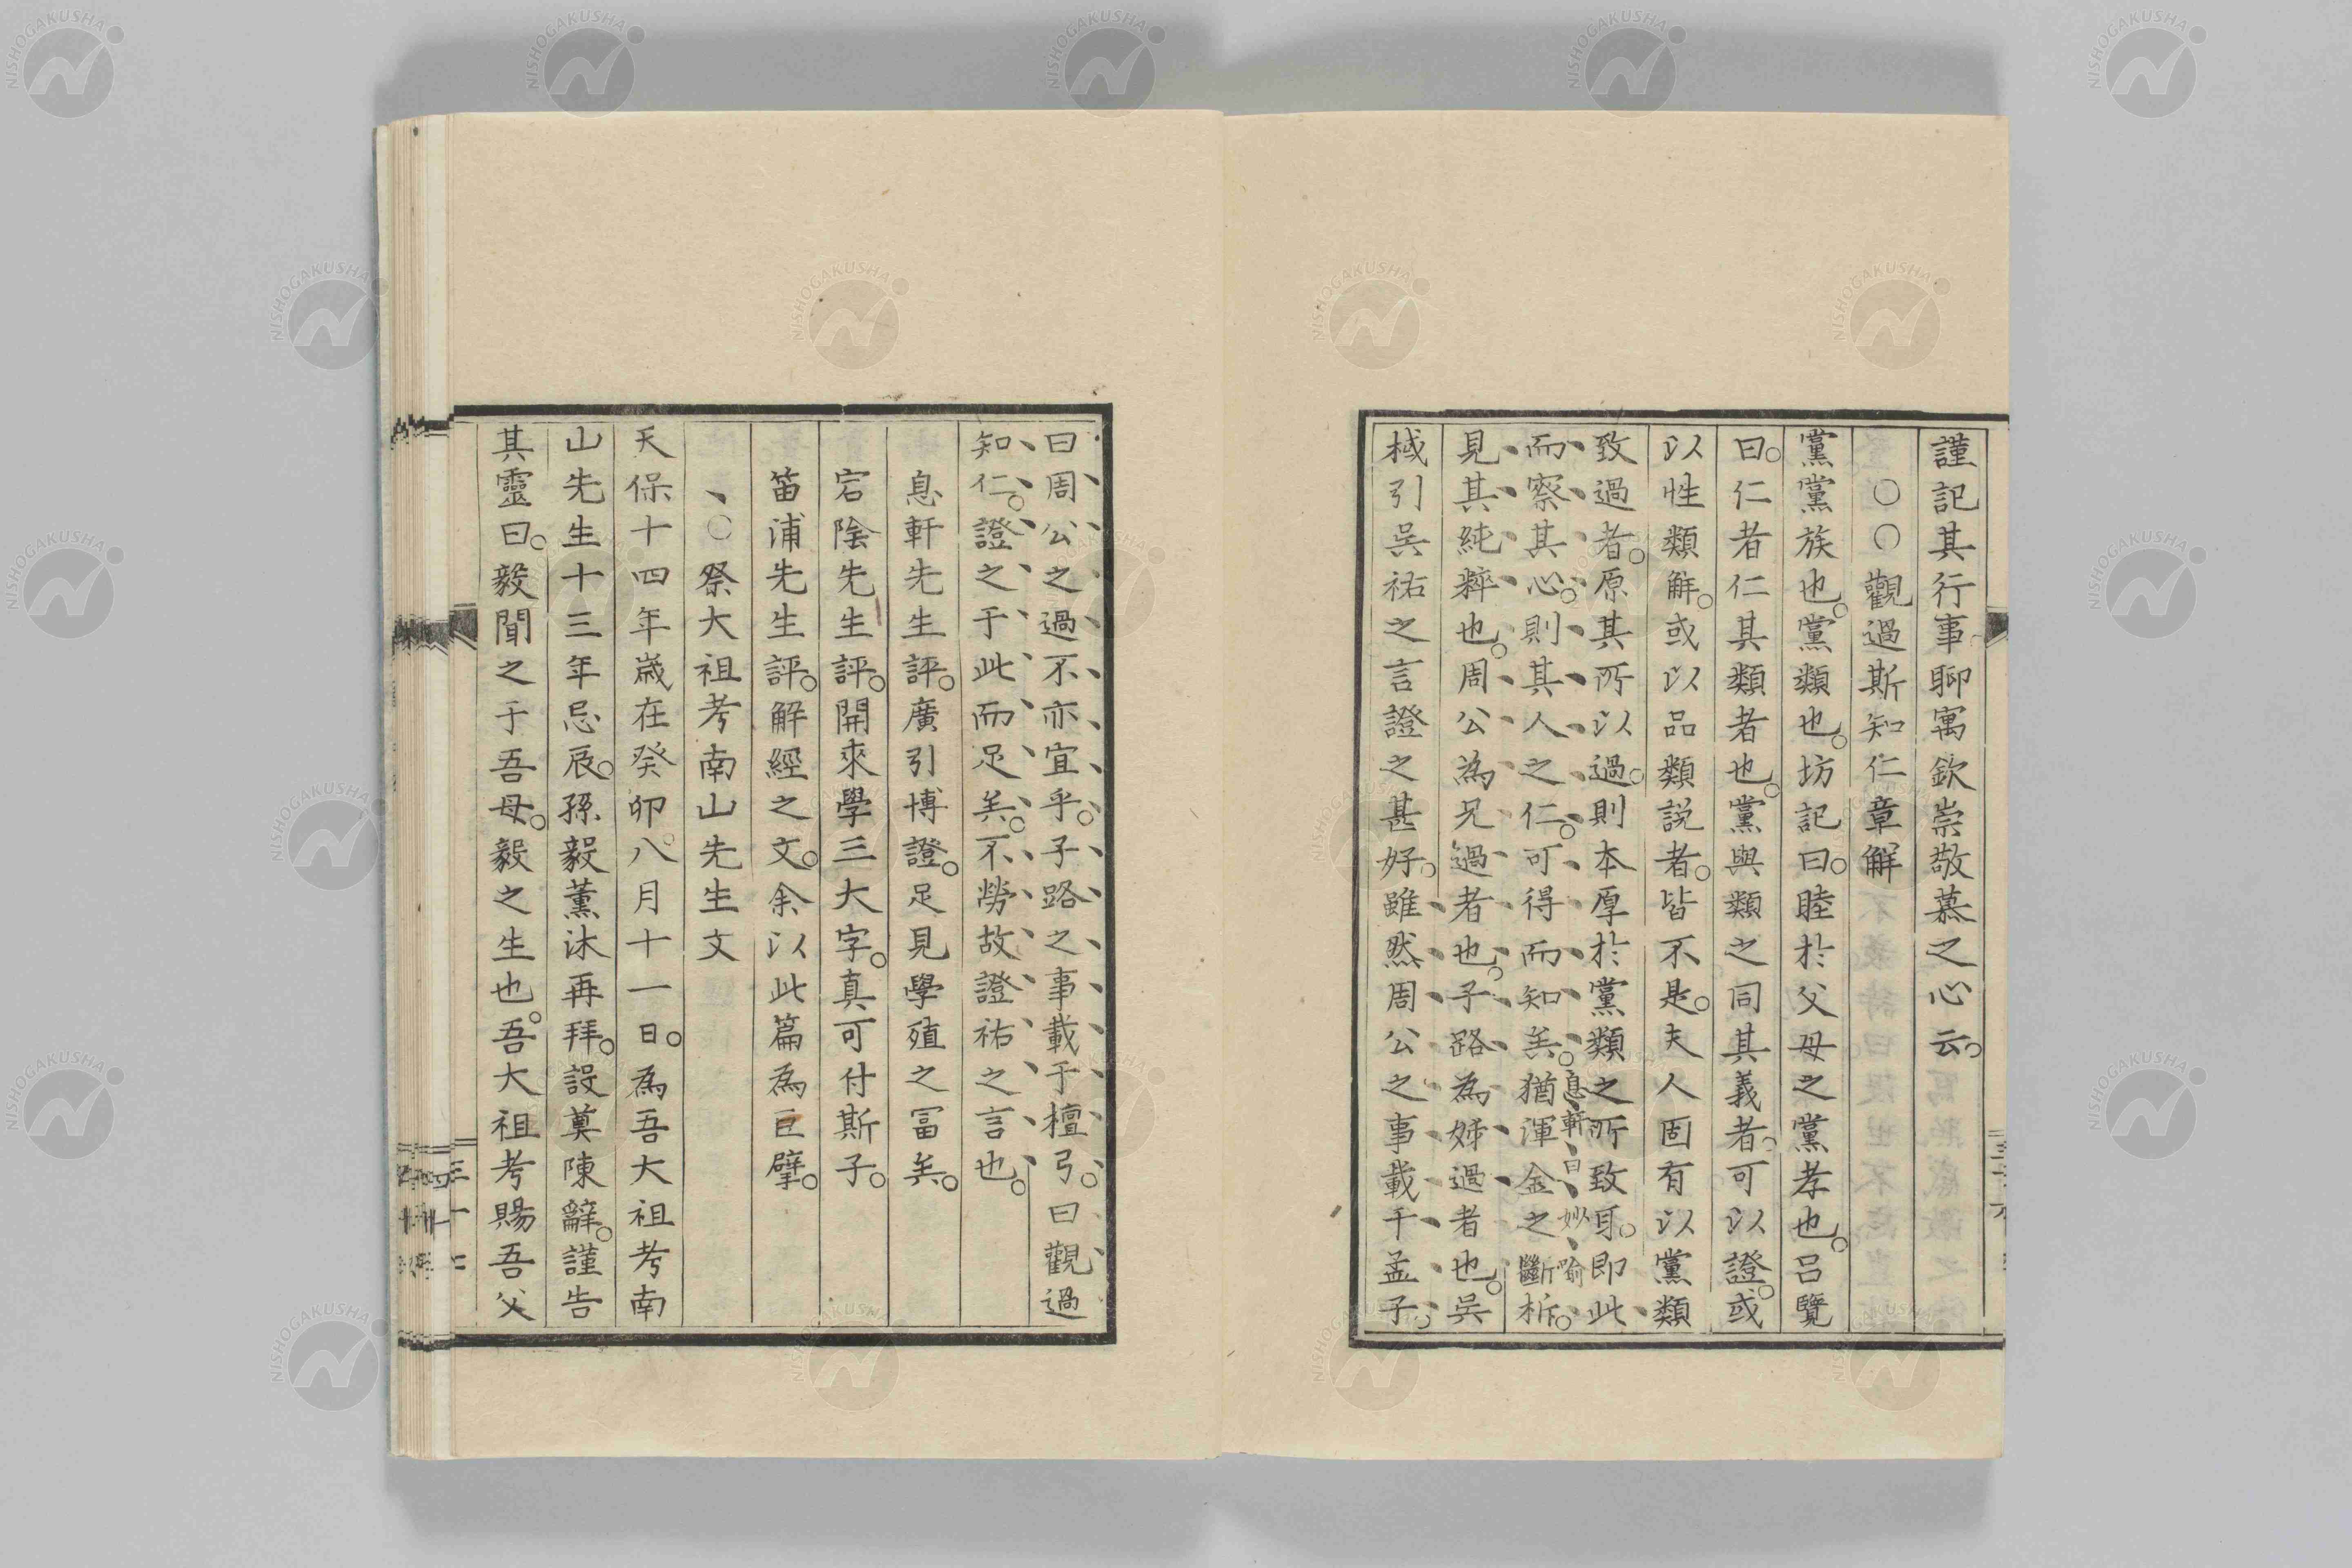 謹記其行事聊寓欽崇敬慕之心云。
○○觀過斯知仁章解
黨黨族也。黨類也。坊記曰。睦於父母之黨孝也。呂覽
曰。仁者仁其類者也。黨與類之同其義者。可以證。或
以性類解。或以品類説者。皆不是。夫人固有以黨類
致過者。原其所以過。則本厚於黨類之所致耳。即此
而察其心。則其人之仁。可得而知矣。息軒曰妙喻猶渾金之斷析。
見其純粹也。周公為兄過者也。子路為姊過者也。吳
棫引吳祐之言證之甚好。雖然周公之事載于孟子。
曰周公之過不亦宜乎。子路之事載于檀弓。曰觀過
知仁。證之于此而足矣。不勞故證祐之言也。
息軒先生評。廣引博證。足見學殖之富矣。
宕陰先生評。開來學三大字。真可付斯子。
笛浦先生評。解經之文。余以此篇為巨擘。
、○祭大祖考南山先生文
天保十四年歲在癸卯。八月十一日。為吾大祖考南
山先生十三年忌辰。孫毅薰沐再拜。設奠陳辭。謹告
其靈曰。毅聞之于吾母。毅之生也。吾大祖考賜吾父
NISHOGAKUSHA